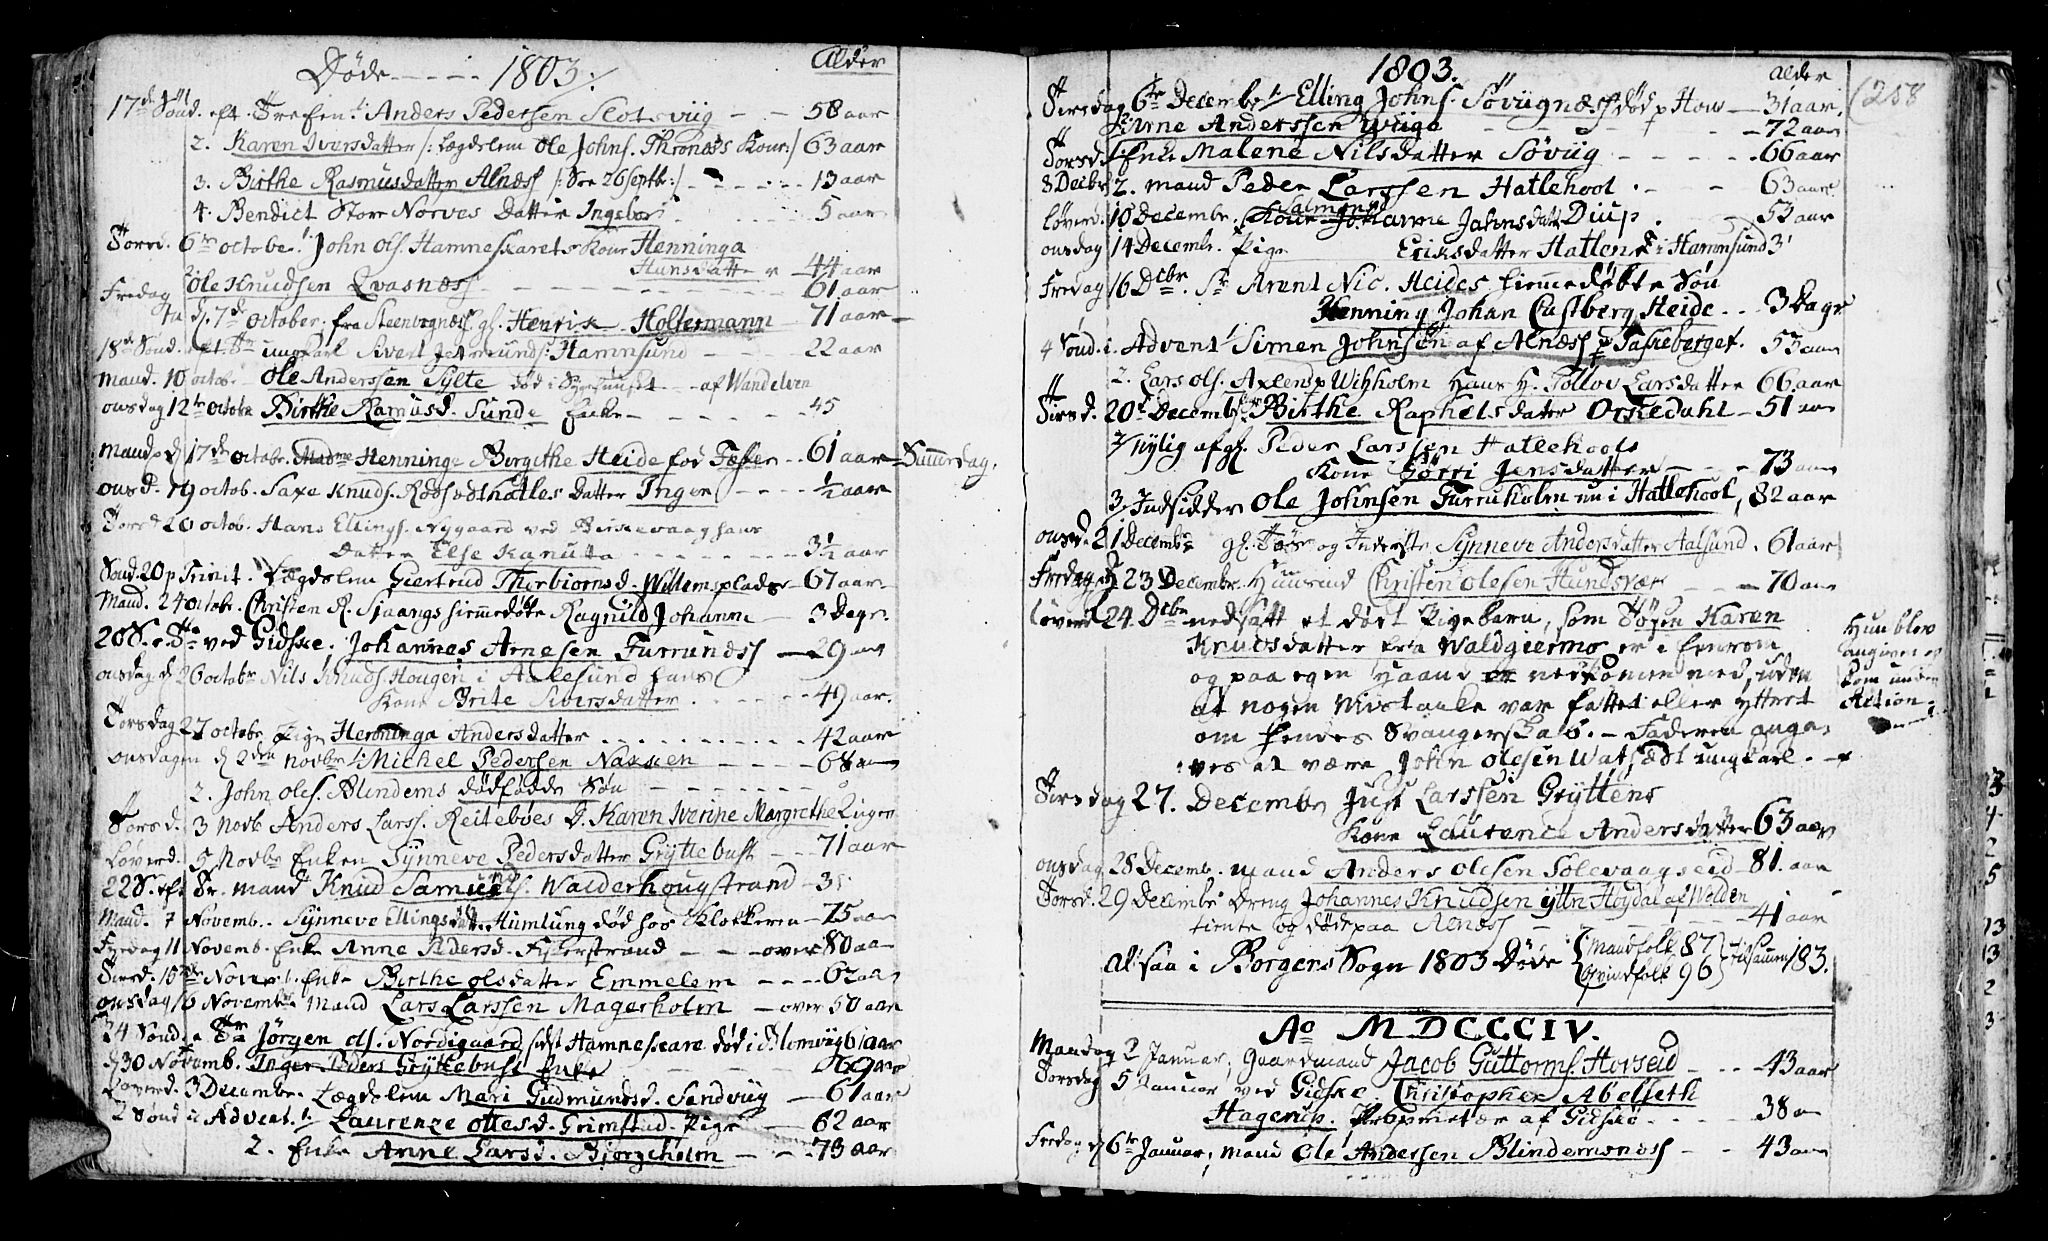 Døde - - - - 1803./ Alder
17de Sönd. eft. Trefen. 1. Anders Pedersen Slotsviig - - 58 aar
2. Karen Iversdatter /: Lægdslem Ole Johns. Thronæs Kone:/ 63 aar
3. Birthe Rasmusdatter Alnæs /: See 26 Septb:/ - - - - 13 aar
4. Bendict Store Norves Datter Ingebor - - - 5 aar
Torsd. 6te october 1. John ols. Hamneskarets Kone Henninga
Hansdatter - 44 aar
2 Ole Knudsen Qvasnæs - - - - - 61 aar
Fredag d. 7de october, fra Steenvognæs gl. Henrik Holtermann - 71 aar
18de Sönd. eft. Tr ungkarl Sivert Hamnsund - - - 22 aar
Mand. 10 octob. Ole Anderssen Sylte død i - - af Wandelven
onsdag 12te octobr Birthe Ramusd. Sunde Enke - - - 45
Mand. d 17de octobr. Madme Henninge Birgithe Heide fød - - 61 aar Sunnerdag.
onsd. 19 octob. Saxe Knuds. Rødsædthatles datter Inger - - - 1/2 aar
Torsd 20 octob. Hans Ellings. Nygaard ved hans
Datter Else Kanutta - - - - 3 1/2 aar
Sönd. 20 p Trinit. Lægdslem Giertrud Thorbiornsd. Willemsplads - 67 aar
Mand. 24 octobr. Christen R. Sjaangs hiemmedøbte Ragnild Johanne - 3 Dage
20 S. e Tr ved Gidske. Johannes Arnesen Furrunds - 29 aar
onsdag d 26 octobr Nils Knuds. Hougen i Aalesund hans
Kone Brite Siversdatter - - - 49 aar.
Torsdag 27 octobr Pige Henninga Andersdatter - - - 42 aar
onsdagen d 2den Novbr 1. Michel Pedersen Naxsen - - - 68 aar
2. John oles. Blindems dødfødde Søn - - - 0
Torsd. 3 Novb Anders Larss. Reitebøes D. Karen Iverine Margrethe 2 uger
Løverd. 5 Novbr Enken Synneve Pedersdatter Gryttebust - - 71 aar
22 S. eft Tr. mand Knud Samuels. Walderhougstrand - 3
Mand. 7 Novemb. Synneve Ellingsdatt. Humlung død hos Klokkeren - 75 aar
Fredag 11 Novemb. Enke Anne Pedersd. Fiskerstrand - - over 80 aar
Tiersd. 15de Novemb. Enke Birthe olsdatter Emmelem - - - 62 aar
onsdag 16 Novembr Mand Lars Larssen Magerholm - over 50 aar
24 Sönd. e Tr Jørgen ols. Nordigaard sidst Hamneskare død i Blomviig 61 aar
d 30 Novemb. Inger Peders Gryttebust Enke 69 aar
Løverd. 3 Decembr. Lægdslem Mari Gudmundsd. Sandviig - 61 aar
2 Sönd i Advent. 1. Laurenze ottesd. Grimstad Pige - - 62 aar
2. Enke Anne Larsd. Bjørgeholm - - - 73 aar
1803. Alder (258
Tirsdag 6te Decembr 1. Elling Johns. Søviignæs død p Hous - 31 aar
2. Arne Anderssen Wiige - - - 72 aar
Torsd 1. Enke Malene Nilsdatter Søviig - - - - 66 aar
8 Decbr 2. mand Peder Larssen Hatlehool - - - 63 aar
Løverd. 10 Decembr. Salmons Kone Johanne Jahnsdatt Diup - - 53 aar
onsdag 14 Decembr. Pige Eriksdatter Hatlen i Hamnsund 3
Fredag 16 Dcbr. Sr Arent Nic. Heides hiemmedøbte Søn
Henning Johan Castberg Heide - - 3 Dage
4 Sönd. i Advent 1. Simen Johnsen af Alnæs p Taskeberget. 53 aar
2. Lars ols. Axlens p Wihholm Hans H. Tollov Larsdatter 66 aar
Tirsd. 20de Decemb. 1. Birthe Raphelsdatter Orskedahl - 51 aar
2/ nylig afg. Peder Larssen Hatlehools
Kone Gørri Jensdatter - - - 73 aar
3. Indsidder Ole Johnsen Furruholm nu i Hatlehool, 82 aar
onsd. 21 Decembr gl. og Inderste Synneve Andersdatter Aalsund. 61 aar
Fredag d 23 Decembr. Huusmand Christen Olesen Hundsvær - 70 aar
Løverd 24. Dcbr nedsatt et dødt Pigebarn, som Pigen Karen
Knudsdatter fra Waldgiermo er i Eenrom
og paa egen Haand er nedkomen med, uden
at nogen Mistanke var fattet eller yttret
om hendes Svangerskab. - Faderen ange-
ves at være John Olesen Watsædt ungkarl.
Hun blev
angiven og
kom under
Action
Tirsdag 27. Decembr Just Larssen Gryttens
Kone Laurence Andersdatter 63 aar
onsdag 28 Decemb. Mand Anders Olesen Solevaagseid - 81. aar
Torsd. 29 Decembr Dreng Johannes Knudsen ytn Høydal af Wolden
tiente og døde paa Alnæs - - - 41 aar
altsaa i Borgens Sogn 1803 Døde { Mandfolk 87 / Qvindfolk 96 } tilsamen 183.
Ao MDCCCIV.
Mandag 2 Januar, Gaardmand Jacob Guttorms. Horseid - - - 43 aar
Torsdag 5 Januar ved Gidske Christopher Abelseth
Hagerup. Proprietær af Gidskø - - - 38 a
Fredag d 6te Januar, mand Ole Andersen Blindemsnæs - - 43 aar